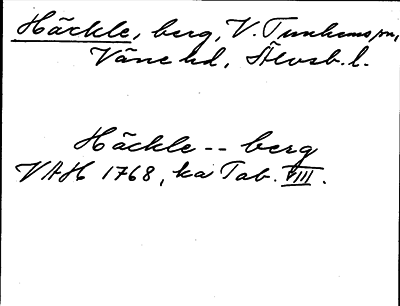 Häckle, berg, V. Tunhems sn,
Väne hd, Älvsb. l.
Häckle -- berg
VAH 1768, ka Tab. VIII.